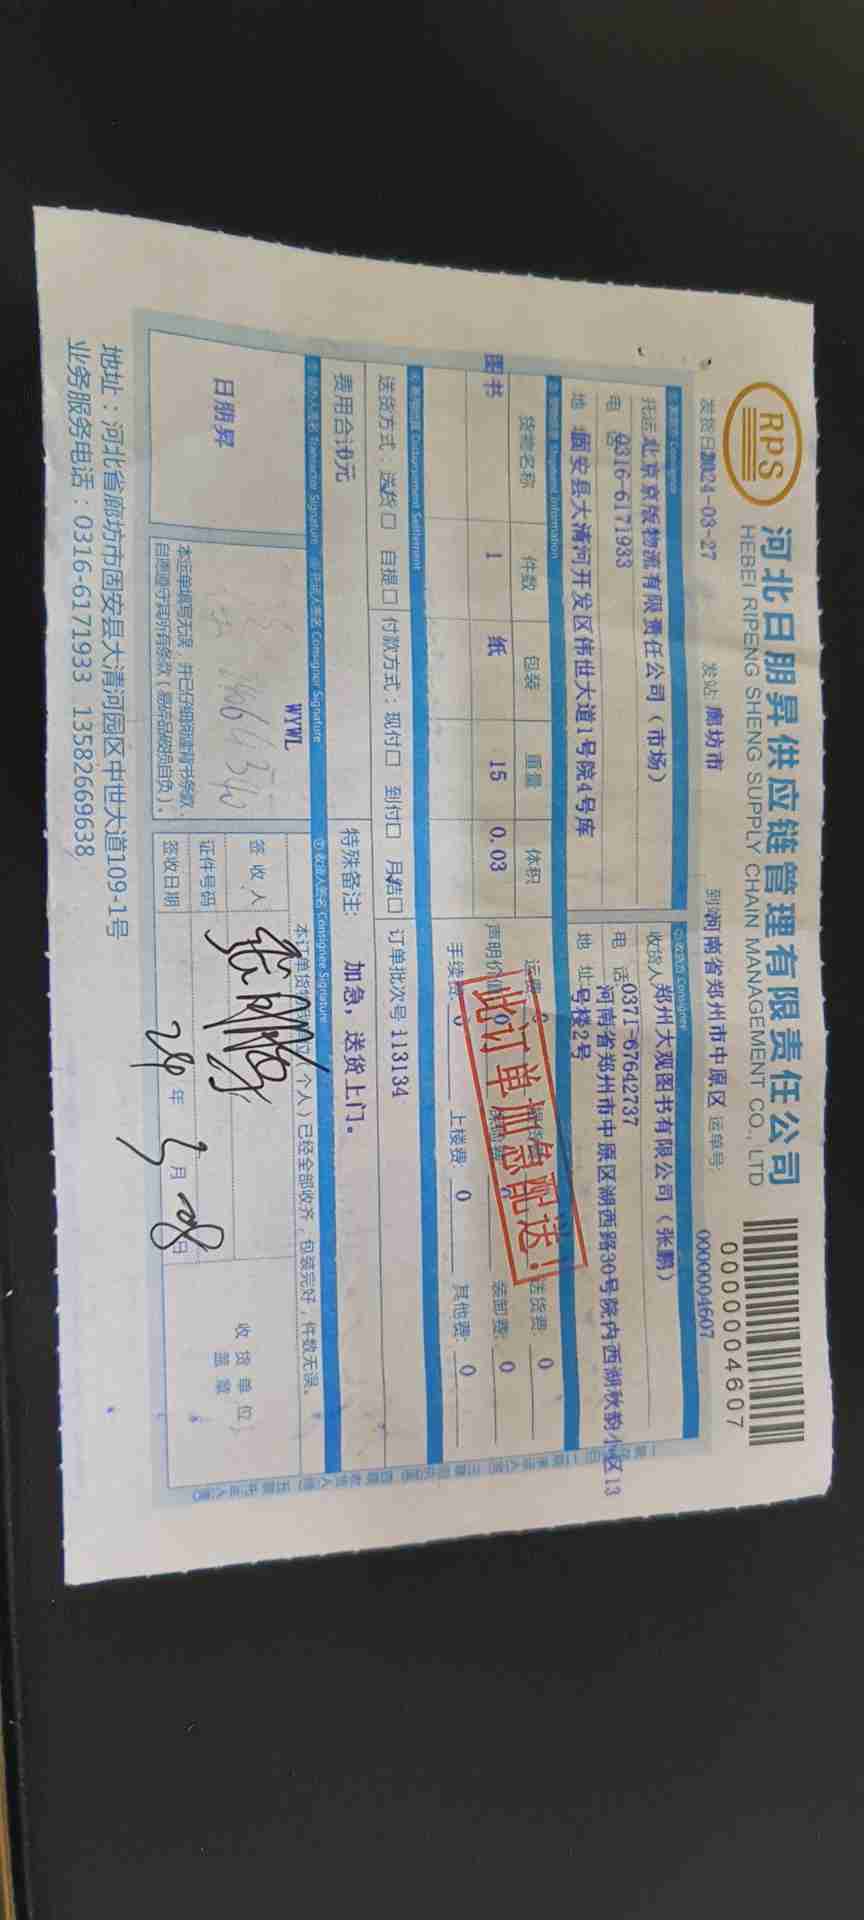 RPS
河北日朋昇供应链管理有限责任公司
HEBEI RIPENG SHENG SUPPLY CHAIN MANAGEMENT CO., LTD
0000004607
发货日期 2024-03-27 发站: 廊坊市 到站 河南省郑州市中原区 运单号: 0000004607
托运 北京京版物流有限责任公司（市场） 收货人 郑州大观图书有限公司（张鹏）
电 话 0316-6171933 电 话 0371-67642737
地 址 固安县大清河开发区伟世大道1号院4号库 地 址 河南省郑州市中原区湖西路30号院内西湖秋韵小区13号楼2号
Shipment Information
货物名称 件数 包装 重量 体积 运费: 0 送货费: 0
图书 1 纸 15 0.03 声明价值 0 装卸费: 0
手续费: 0 上楼费: 0 其他费: 0
此订单加急配送!
Disbursement Settlement
送货方式: 送货□ 自提□ 付款方式: 现付□ 到付□ 月结□ 订单批次号 113134
费用合计 0元 特殊备注: 加急，送货上门。
Transactor Signature 托运人签名 Consignor Signature 收货人签名 Consignee Signature
日朋昇
WYWL
本运单填写无误，并已仔细阅读背书条款，
自愿遵守其所有条款（易碎品破损自负）。
(个人)已经全部收齐，包装完好，件数无误。
签收人
证件号码
签收日期 24年3月28日
收货单位
盖章
地址：河北省廊坊市固安县大清河园区中世大道109-1号
业务服务电话：0316-6171933 13582669638